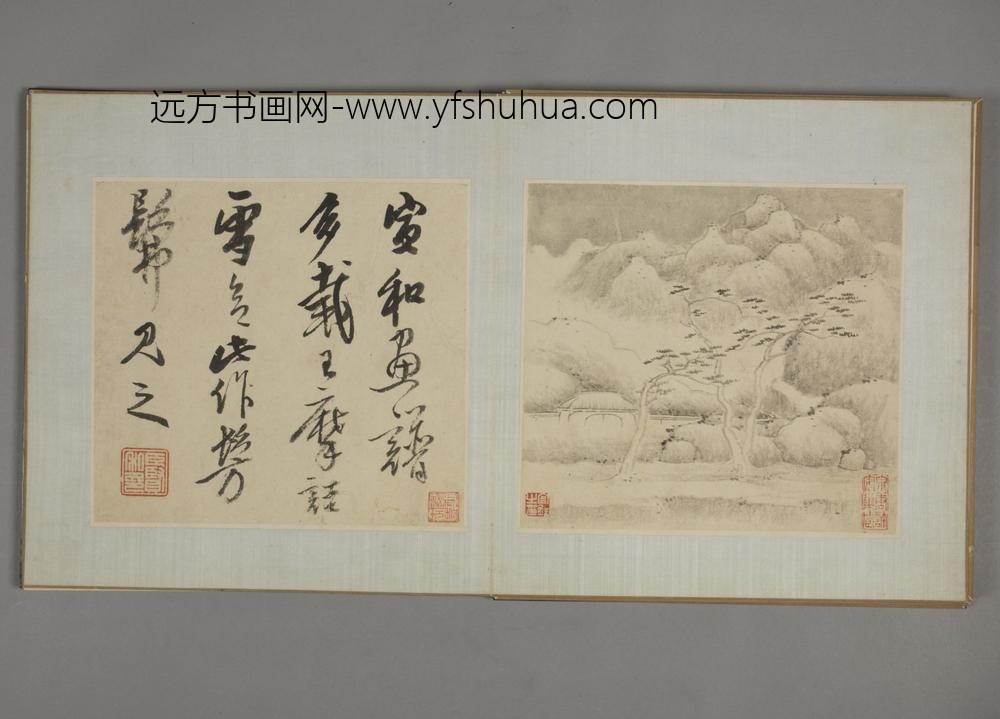 远方书画网-www.yfshuhua.com
宣和画谱
多载王摩诘
雪意此作髣
髴见之